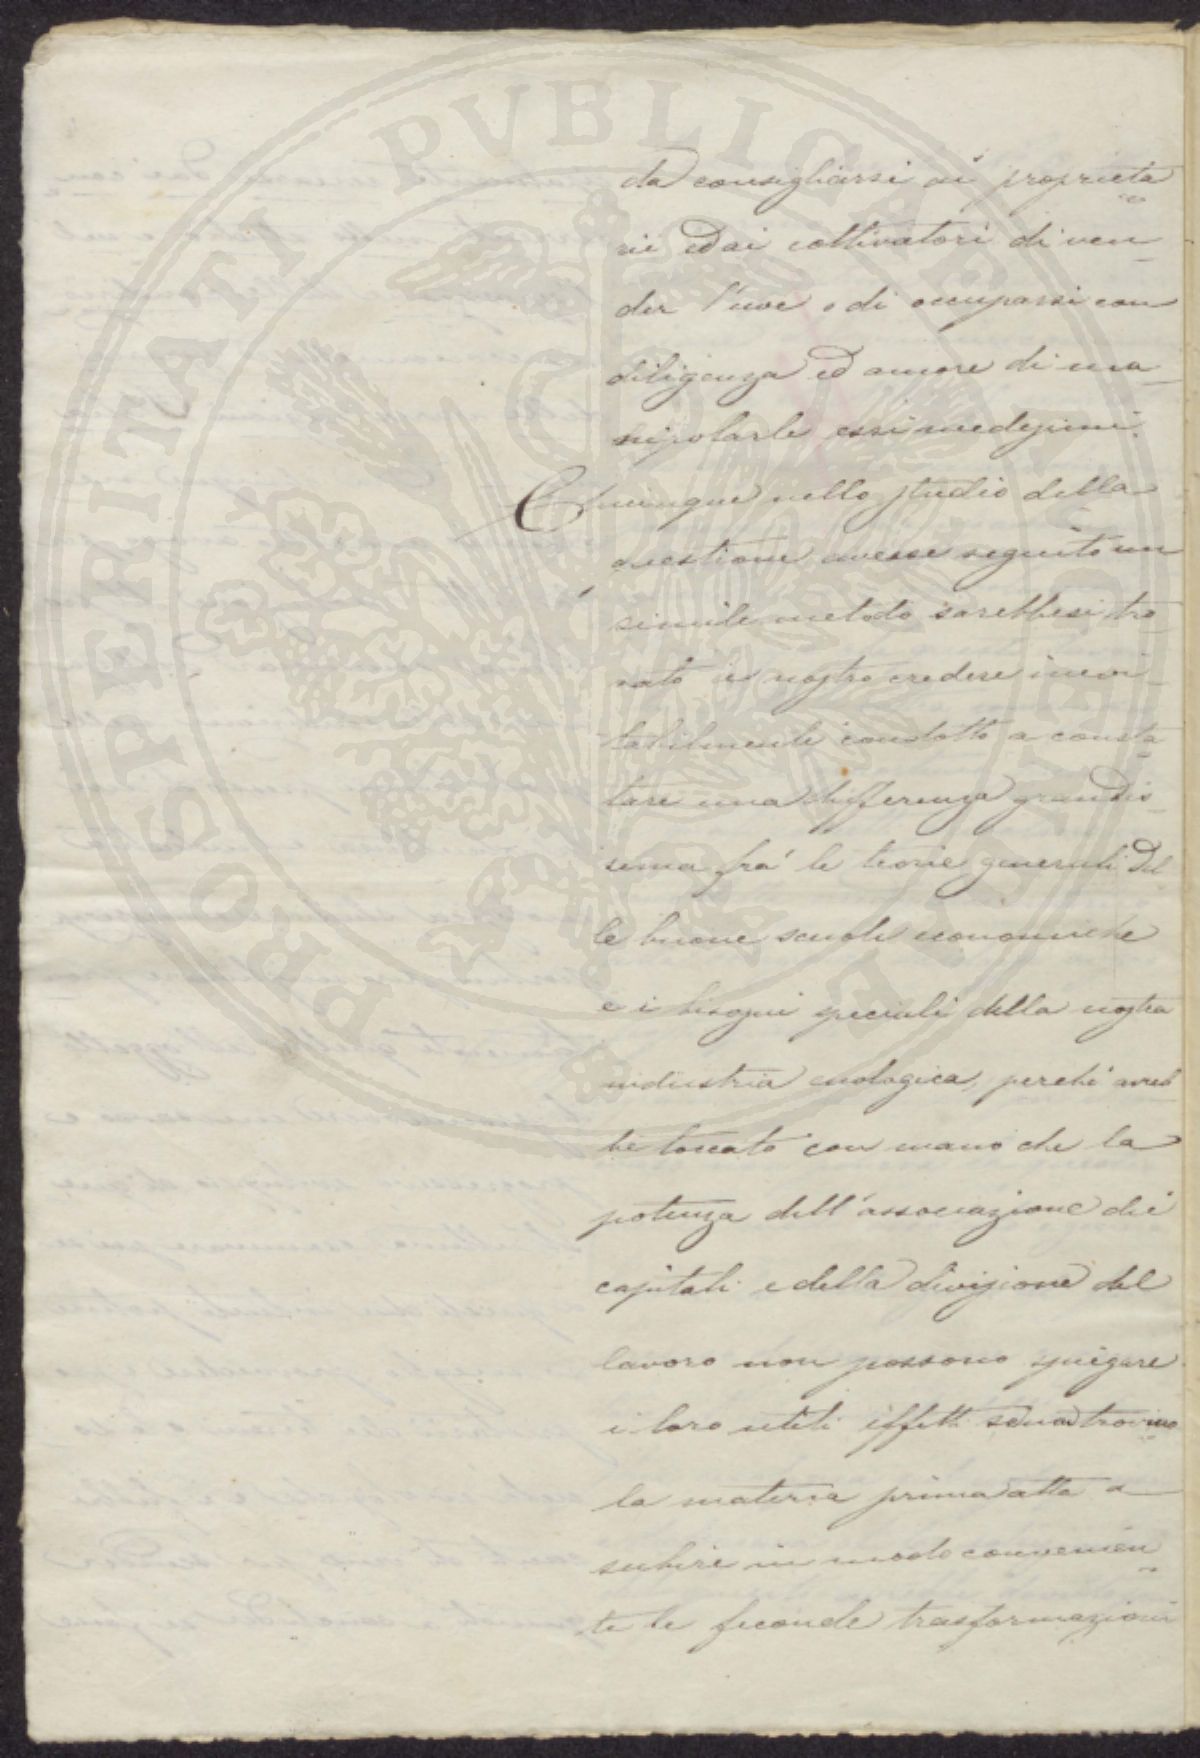 PROSPERITATI PVBLICAE AVGENDAE
da consigliarsi ai proprieta
rii ed ai coltivatori di ven-
der l'uve o di occuparsi con
diligenza ed amore di ma-
nipolarle essi medesimi.
Chiunque nello studio della
questione avesse seguito un
simile metodo sarebbesi tro-
vato a nostro credere inevi-
tabilmente condotto a consta-
tare una differenza grandis-
sima fra' le teorie generali del
le buone scuole economiche
e i bisogni speciali della nostra
industria enologica, perché avreb
be toccato con mano che la
potenza dell'associazione dei
capitali e della divisione del
lavoro non possono spiegare
i loro utili effetti se non trovino
la materia prima atta a
subire in modo convenien-
te le feconde trasformazioni